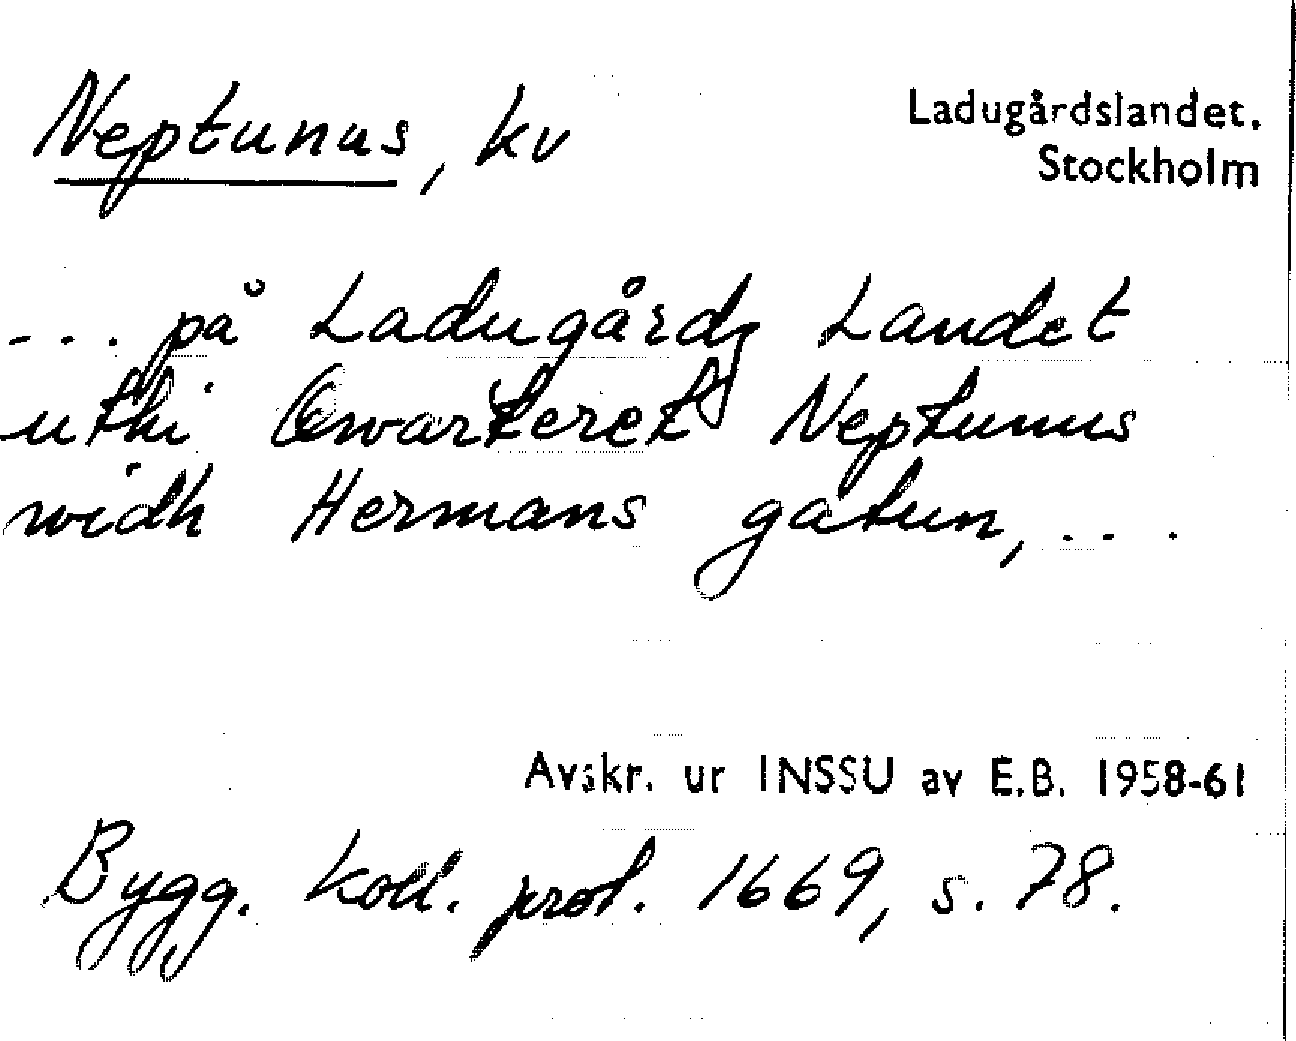 Neptunus, kv
Ladugårdslandet.
Stockholm
... på Ladugårdz Landet
uthi Qwarteret Neptunus
widh Hermans gatun, ...
Avskr. ur INSSU av E.B. 1958-61
Bygg. koll. prot. 1669, s. 78.